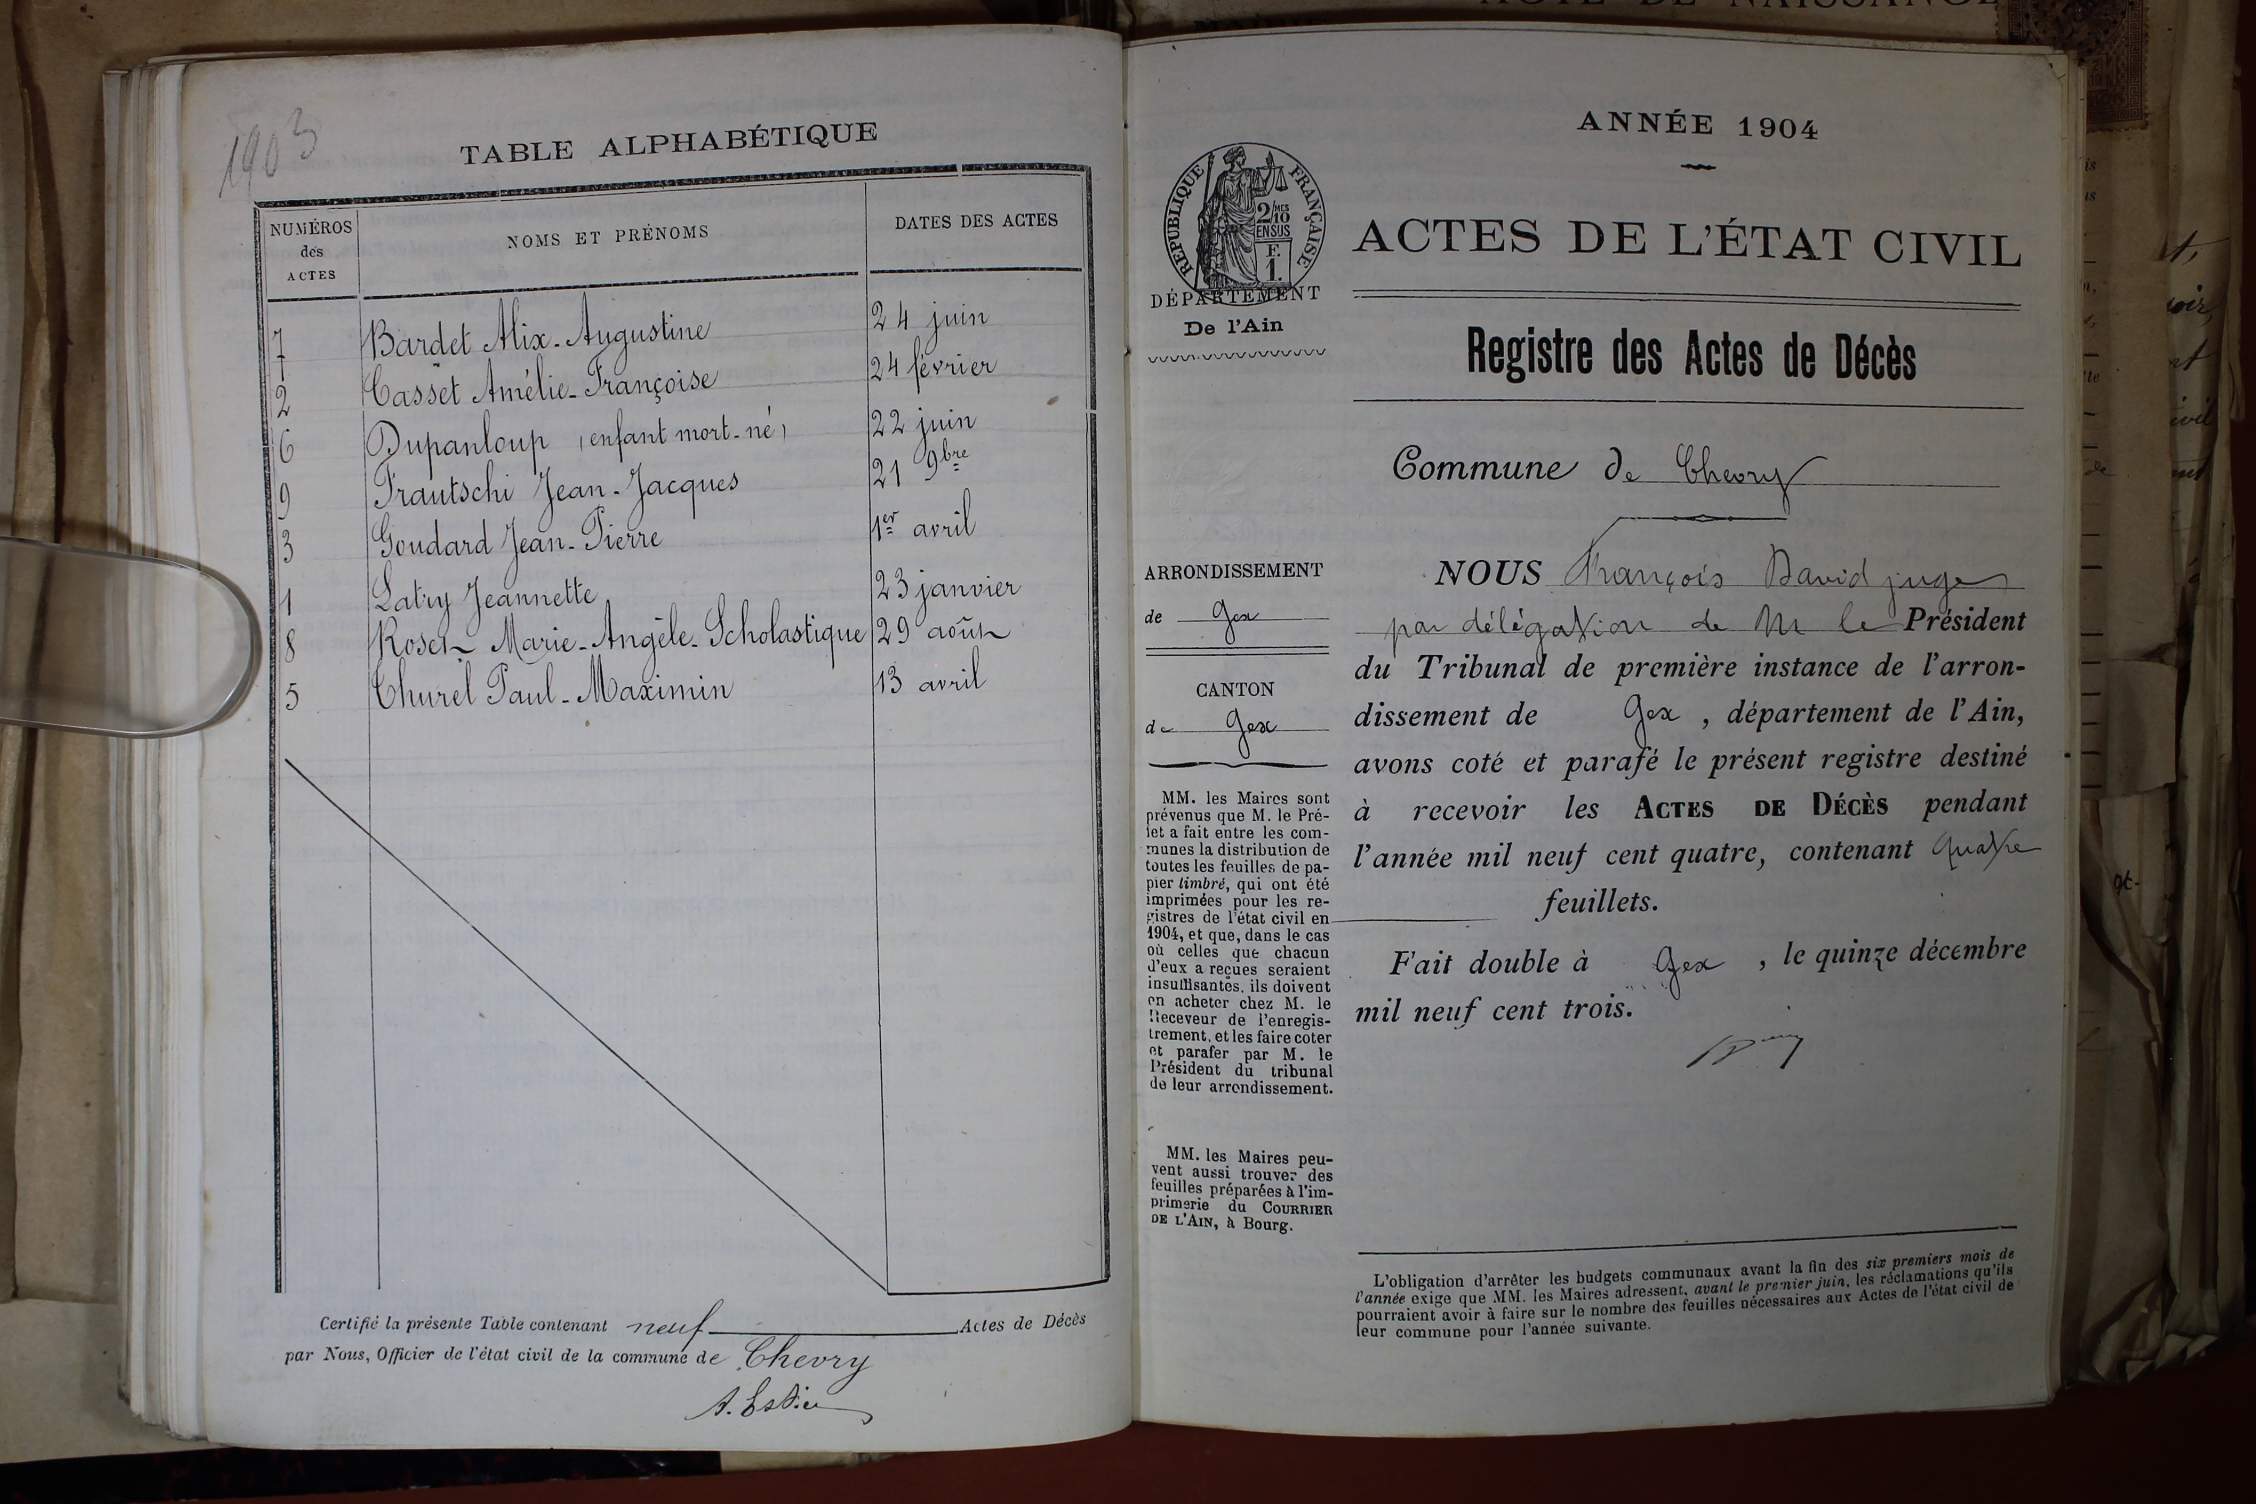 1903
TABLE ALPHABÉTIQUE
NUMÉROS des ACTES
NOMS ET PRÉNOMS
DATES DES ACTES
7 Bardet Alix-Augustine 24 juin
2 Casset Amélie-Françoise 24 février
6 Dupanloup (enfant mort-né) 22 juin
9 Frautschi Jean-Jacques 21 9bre
3 Goudard Jean-Pierre 1er avril
1 Latry Jeannette 23 janvier
8 Roset Marie-Angèle-Scholastique 29 août
5 Thurel Paul-Maximin 13 avril
Certifié la présente Table contenant neuf Actes de Décès
par Nous, Officier de l'état civil de la commune de Chevry
ANNÉE 1904
RÉPUBLIQUE FRANÇAISE
2/10MES
EN SUS
F.
1.
ACTES DE L'ÉTAT CIVIL
DÉPARTEMENT
De l'Ain
Registre des Actes de Décès
Commune de Chevry
ARRONDISSEMENT
de Gex
CANTON
de Gex
MM. les Maires sont
prévenus que M. le Pré-
fet a fait entre les com-
munes la distribution de
toutes les feuilles de pa-
pier timbré, qui ont été
imprimées pour les re-
gistres de l'état civil en
1904, et que, dans le cas
où celles que chacun
d'eux a reçues seraient
insuffisantes, ils doivent
en acheter chez M. le
Receveur de l'enregis-
trement, et les faire coter
et parafer par M. le
Président du tribunal
de leur arrondissement.
MM. les Maires peu-
vent aussi trouver des
feuilles préparées à l'im-
primerie du COURRIER
DE L'AIN, à Bourg.
NOUS François David juge
par délégation de M le Président
du Tribunal de première instance de l'arron-
dissement de Gex, département de l'Ain,
avons coté et parafé le présent registre destiné
à recevoir les ACTES DE DÉCÈS pendant
l'année mil neuf cent quatre, contenant quatre
feuillets.
Fait double à Gex, le quinze décembre
mil neuf cent trois.
L'obligation d'arrêter les budgets communaux avant la fin des six premiers mois de
l'année exige que MM. les Maires adressent, avant le premier juin, les réclamations qu'ils
pourraient avoir à faire sur le nombre des feuilles nécessaires aux Actes de l'état civil de
leur commune pour l'année suivante.